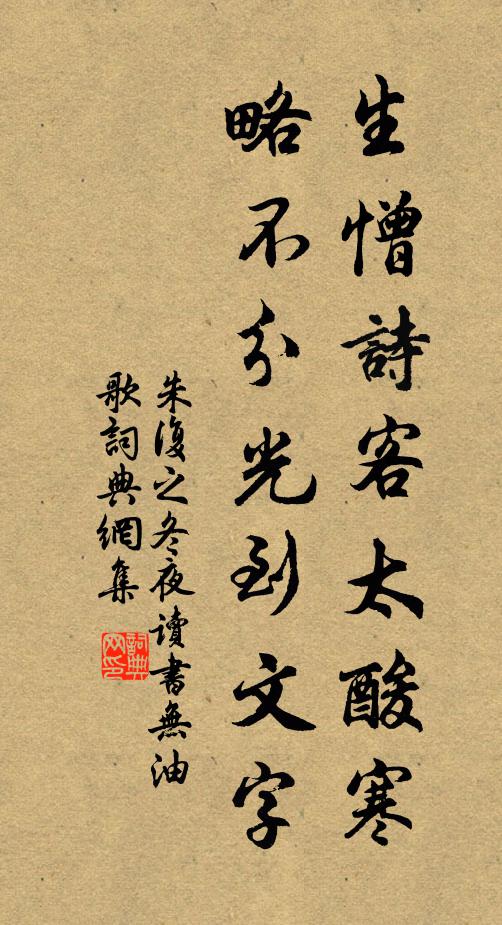 生憎詩客太酸寒
略不分光到文字
朱復之冬夜讀書無油
歌詞典網集
詞典
网印